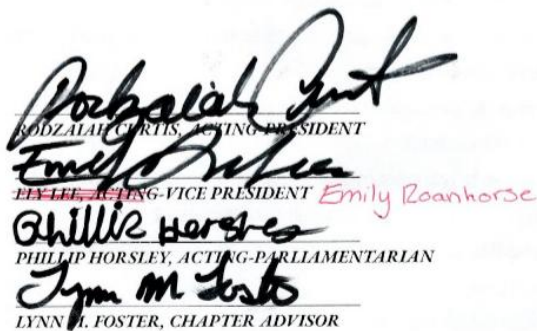 Rodzaiah Curtis
RODZAIAH CURTIS, ACTING-PRESIDENT
Emily
ELY LEE, ACTING-VICE PRESIDENT Emily Roanhorse
Phillip
PHILLIP HORSLEY, ACTING-PARLLIAMENTARIAN
Lynn M Foster
LYNN M. FOSTER, CHAPTER ADVISOR